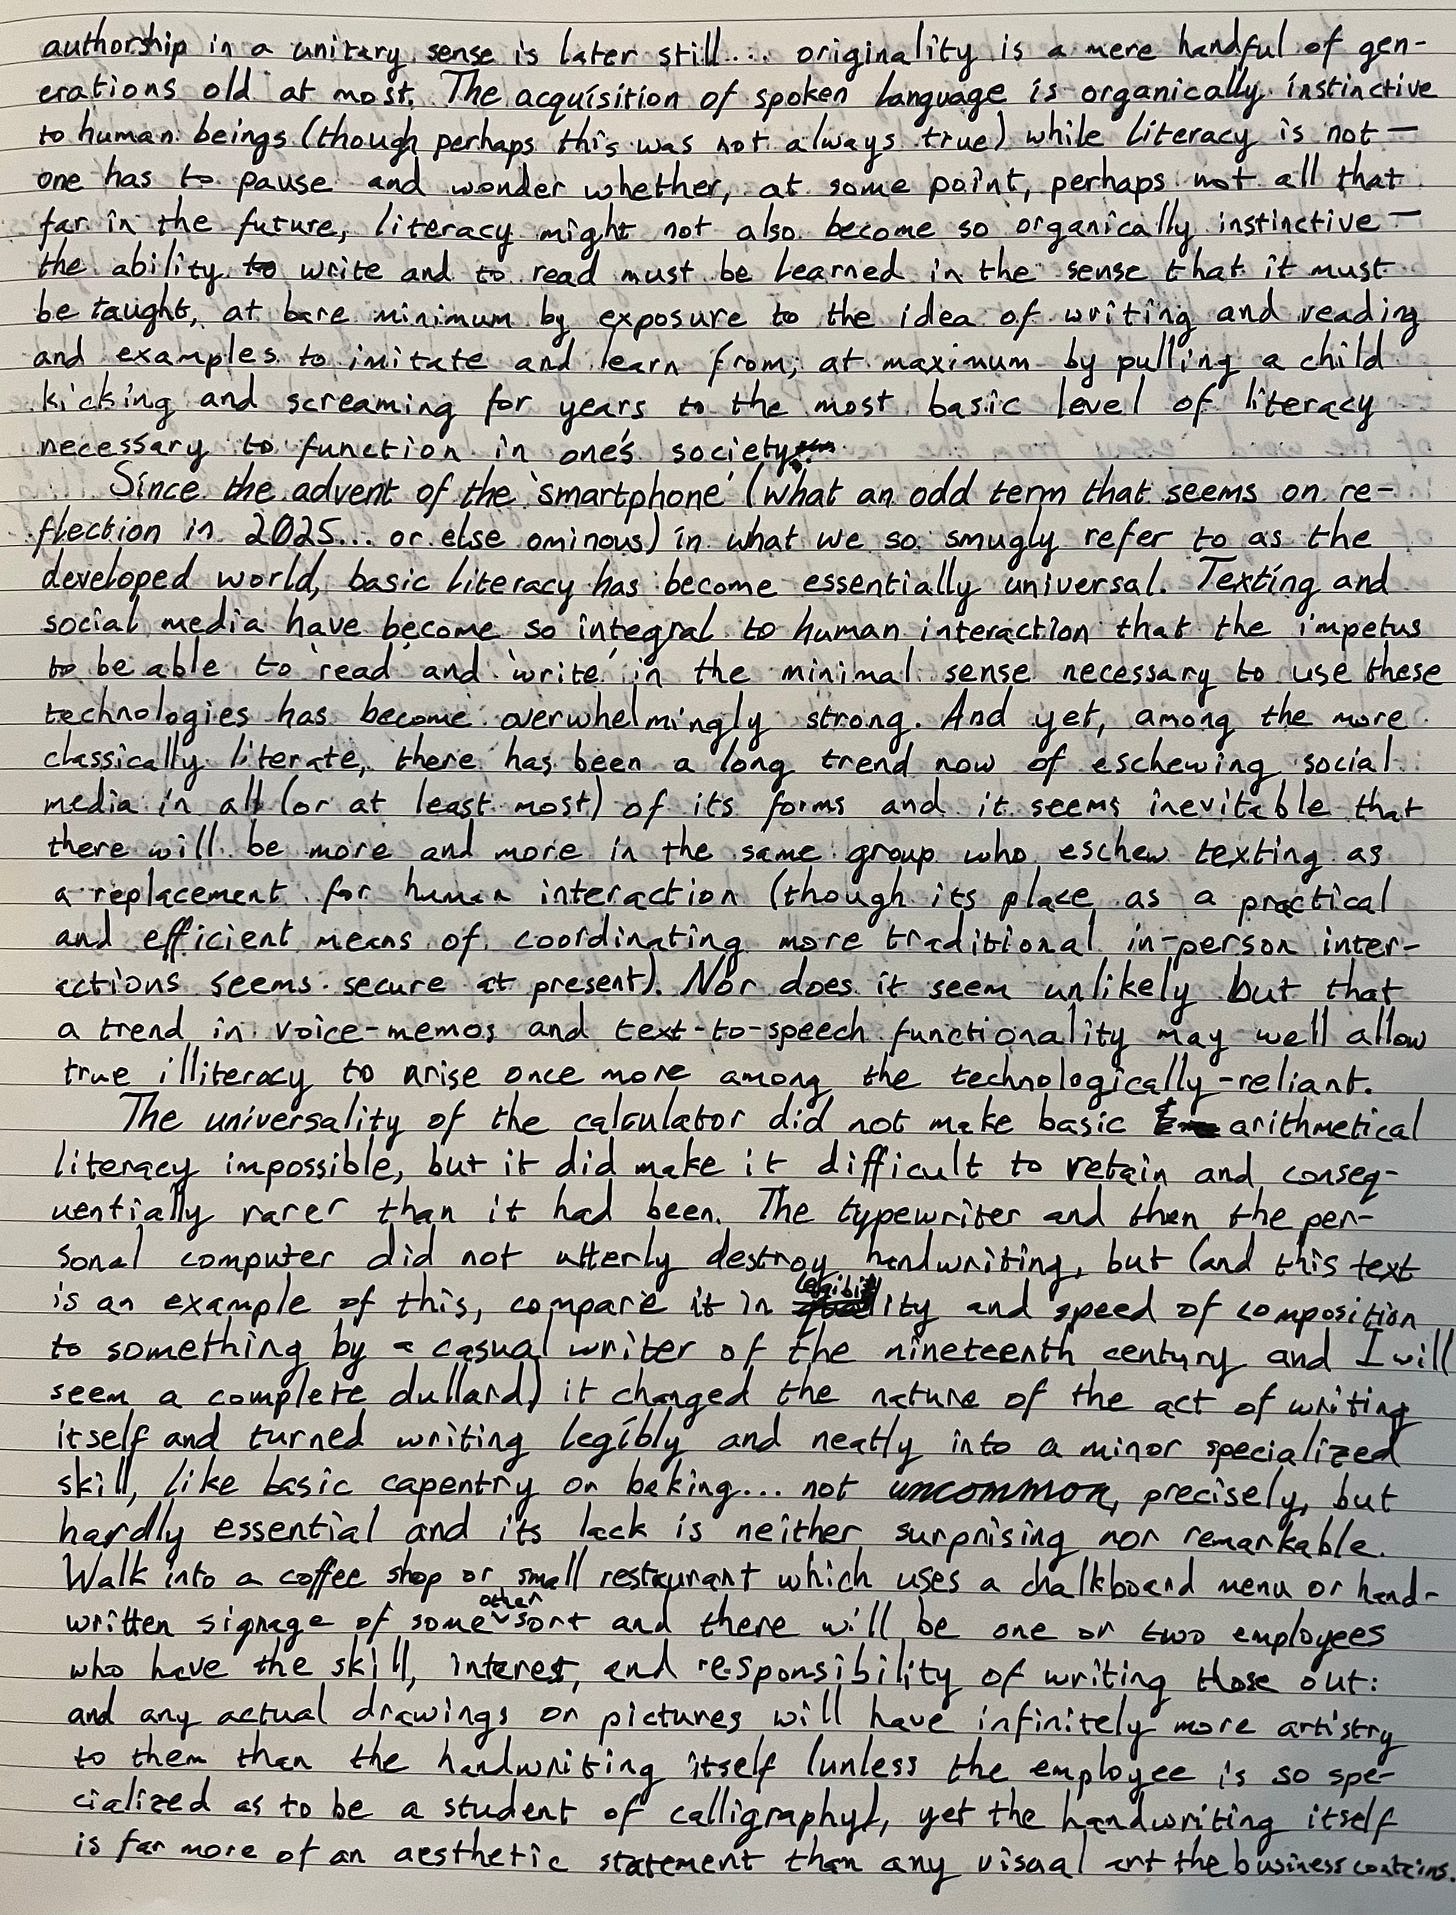 authorship in a unitary sense is later still... originality is a mere handful of gen-
erations old at most. The acquisition of spoken language is organically instinctive
to human beings (though perhaps this was not always true) while literacy is not —
one has to pause and wonder whether, at some point, perhaps not all that
far in the future, literacy might not also become so organically instinctive —
the ability to write and to read must be learned in the sense that it must
be taught, at bare minimum by exposure to the idea of writing and reading
and examples to imitate and learn from; at maximum by pulling a child
kicking and screaming for years to the most basic level of literacy
necessary to function in one's society.
Since the advent of the 'smartphone' (what an odd term that seems on re-
flection in 2025... or else ominous) in what we so smugly refer to as the
developed world, basic literacy has become essentially universal. Texting and
social media have become so integral to human interaction that the impetus
to be able to 'read' and 'write' in the minimal sense necessary to use these
technologies has become overwhelmingly strong. And yet, among the more
classically literate, there has been a long trend now of eschewing social
media in all (or at least most) of its forms and it seems inevitable that
there will be more and more in the same group who eschew texting as
a replacement for human interaction (though its place as a practical
and efficient means of coordinating more traditional in-person inter-
actions seems secure at present). Nor does it seem unlikely but that
a trend in voice-memos and text-to-speech functionality may well allow
true illiteracy to arise once more among the technologically-reliant.
The universality of the calculator did not make basic arithmetical
literacy impossible, but it did make it difficult to retain and conseq-
uentially rarer than it had been. The typewriter and then the per-
sonal computer did not utterly destroy handwriting, but (and this text
is an example of this, compare it in legibility and speed of composition
to something by a casual writer of the nineteenth century and I will
seem a complete dullard) it changed the nature of the act of writing
itself and turned writing legibly and neatly into a minor specialized
skill, like basic capentry or baking... not uncommon, precisely, but
hardly essential and its lack is neither surprising nor remarkable.
Walk into a coffee shop or small restaurant which uses a chalkboard menu or hand-
written signage of some other sort and there will be one or two employees
who have the skill, interest, and responsibility of writing those out:
and any actual drawings or pictures will have infinitely more artistry
to them than the handwriting itself (unless the employee is so spe-
cialized as to be a student of calligraphy), yet the handwriting itself
is far more of an aesthetic statement than any visual art the business contains.